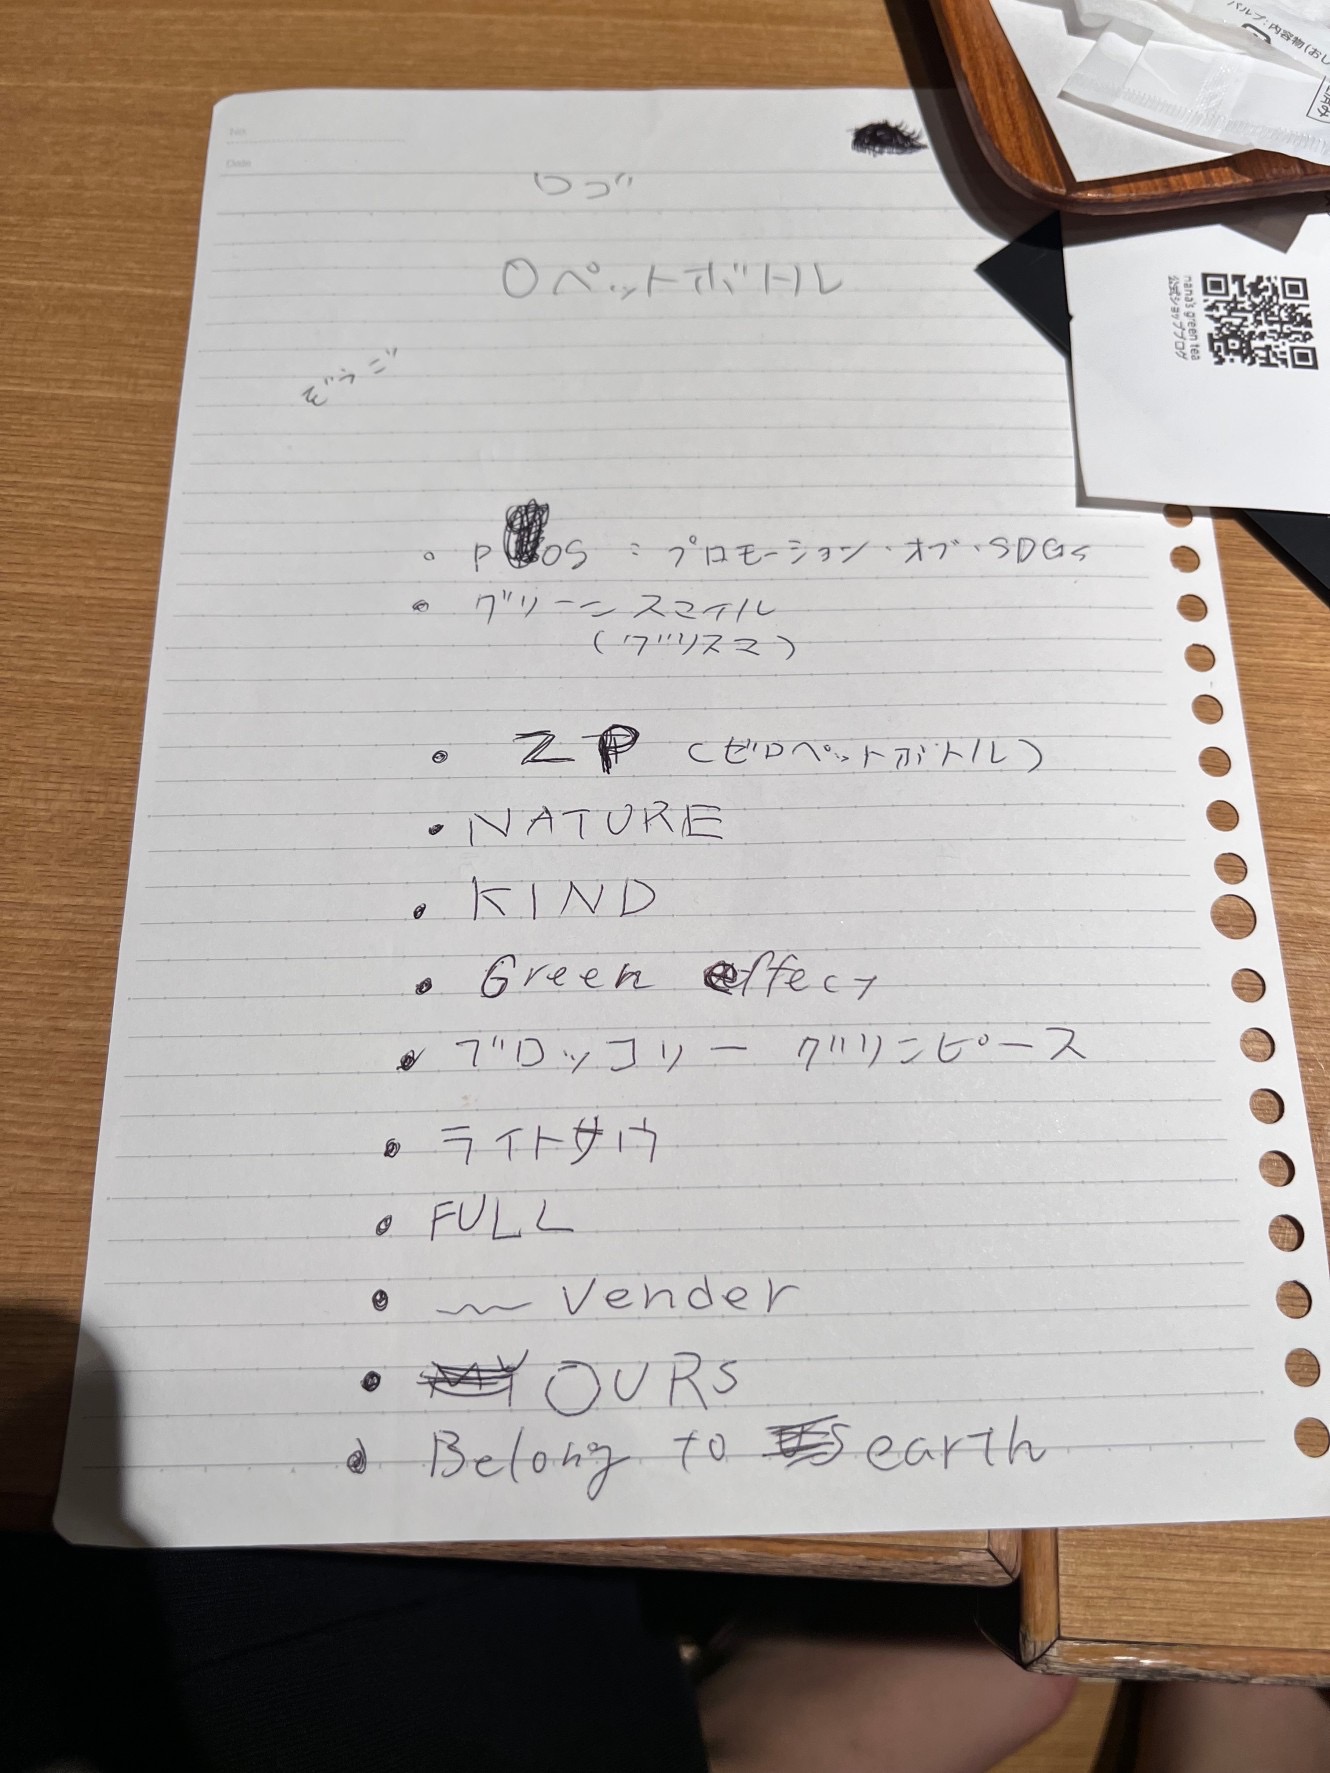 パルプ:内容物(おし
Date
ロゴ
0ペットボトル
nana's green tea
公式ショップブログ
ぞうご
• P OS : プロモーション・オブ・SDGs
• グリーンスマイル
(グリスマ)
• ZP (ゼロペットボトル)
• NATURE
• KIND
• Green effect
• ブロッコリー グリンピース
• ライトサウ
• FULL
• 〰 Vender
• MY OURS
• Belong to earth